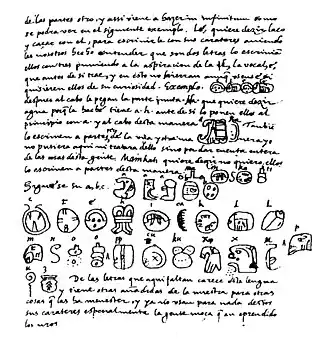 de las partes otro, y assi viene a hazer in infinitum como
se podra ver en el siguiente exemplo. Lé, quiere dezir laço
y caçar con el, para escrivirle con sus carateres aviendo
les nosotros hecho entender que son dos letras lo escrivian
ellos con tres puniendo a la aspiracion de la l, la vocal e,
que antes de si trae, y en esto no hierran aunq
quisieren ellos de su curiosidad. Exemplo.
despues al cabo le pegan la parte junta. Ha que quiere dezir
agua porq la hache tiene a. h. ante de si lo ponen ellos al
principio con a. y al cabo desta manera Tambie
lo escriven a partes de la una y otra manera yo
no pusiera aqui ni tratara dello sino por dar cuenta entera
de las cosas desta gente. Mainkati quiere dezir no quiero, ellos
lo escriven a partes desta manera
Siguese su a. b. c.
c t e h i ca k l l
m n o o pp cu ku x x
u z p
De las letras que aqui faltan carece esta lengua
y tiene otras añadidas de la nuestra para otras
cosas q las ha menester, y ya no usan para nada destos
sus carateres especialmente la gente moça q an aprendido
los nros